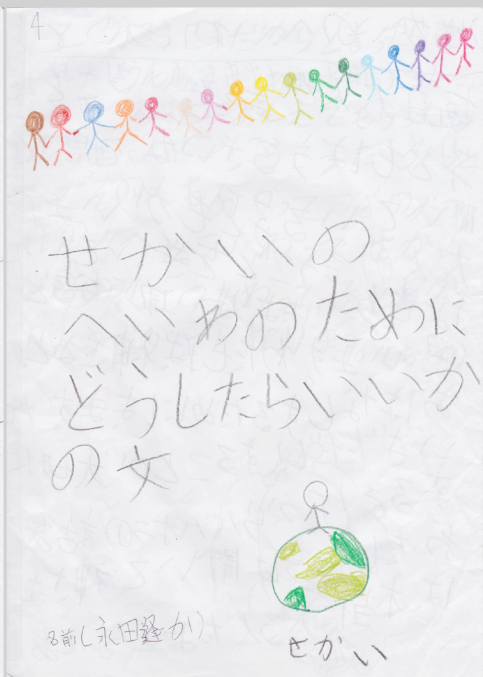 4
せかいの
へいわのために
どうしたらいいか
の文
名前(永田 か)
せかい